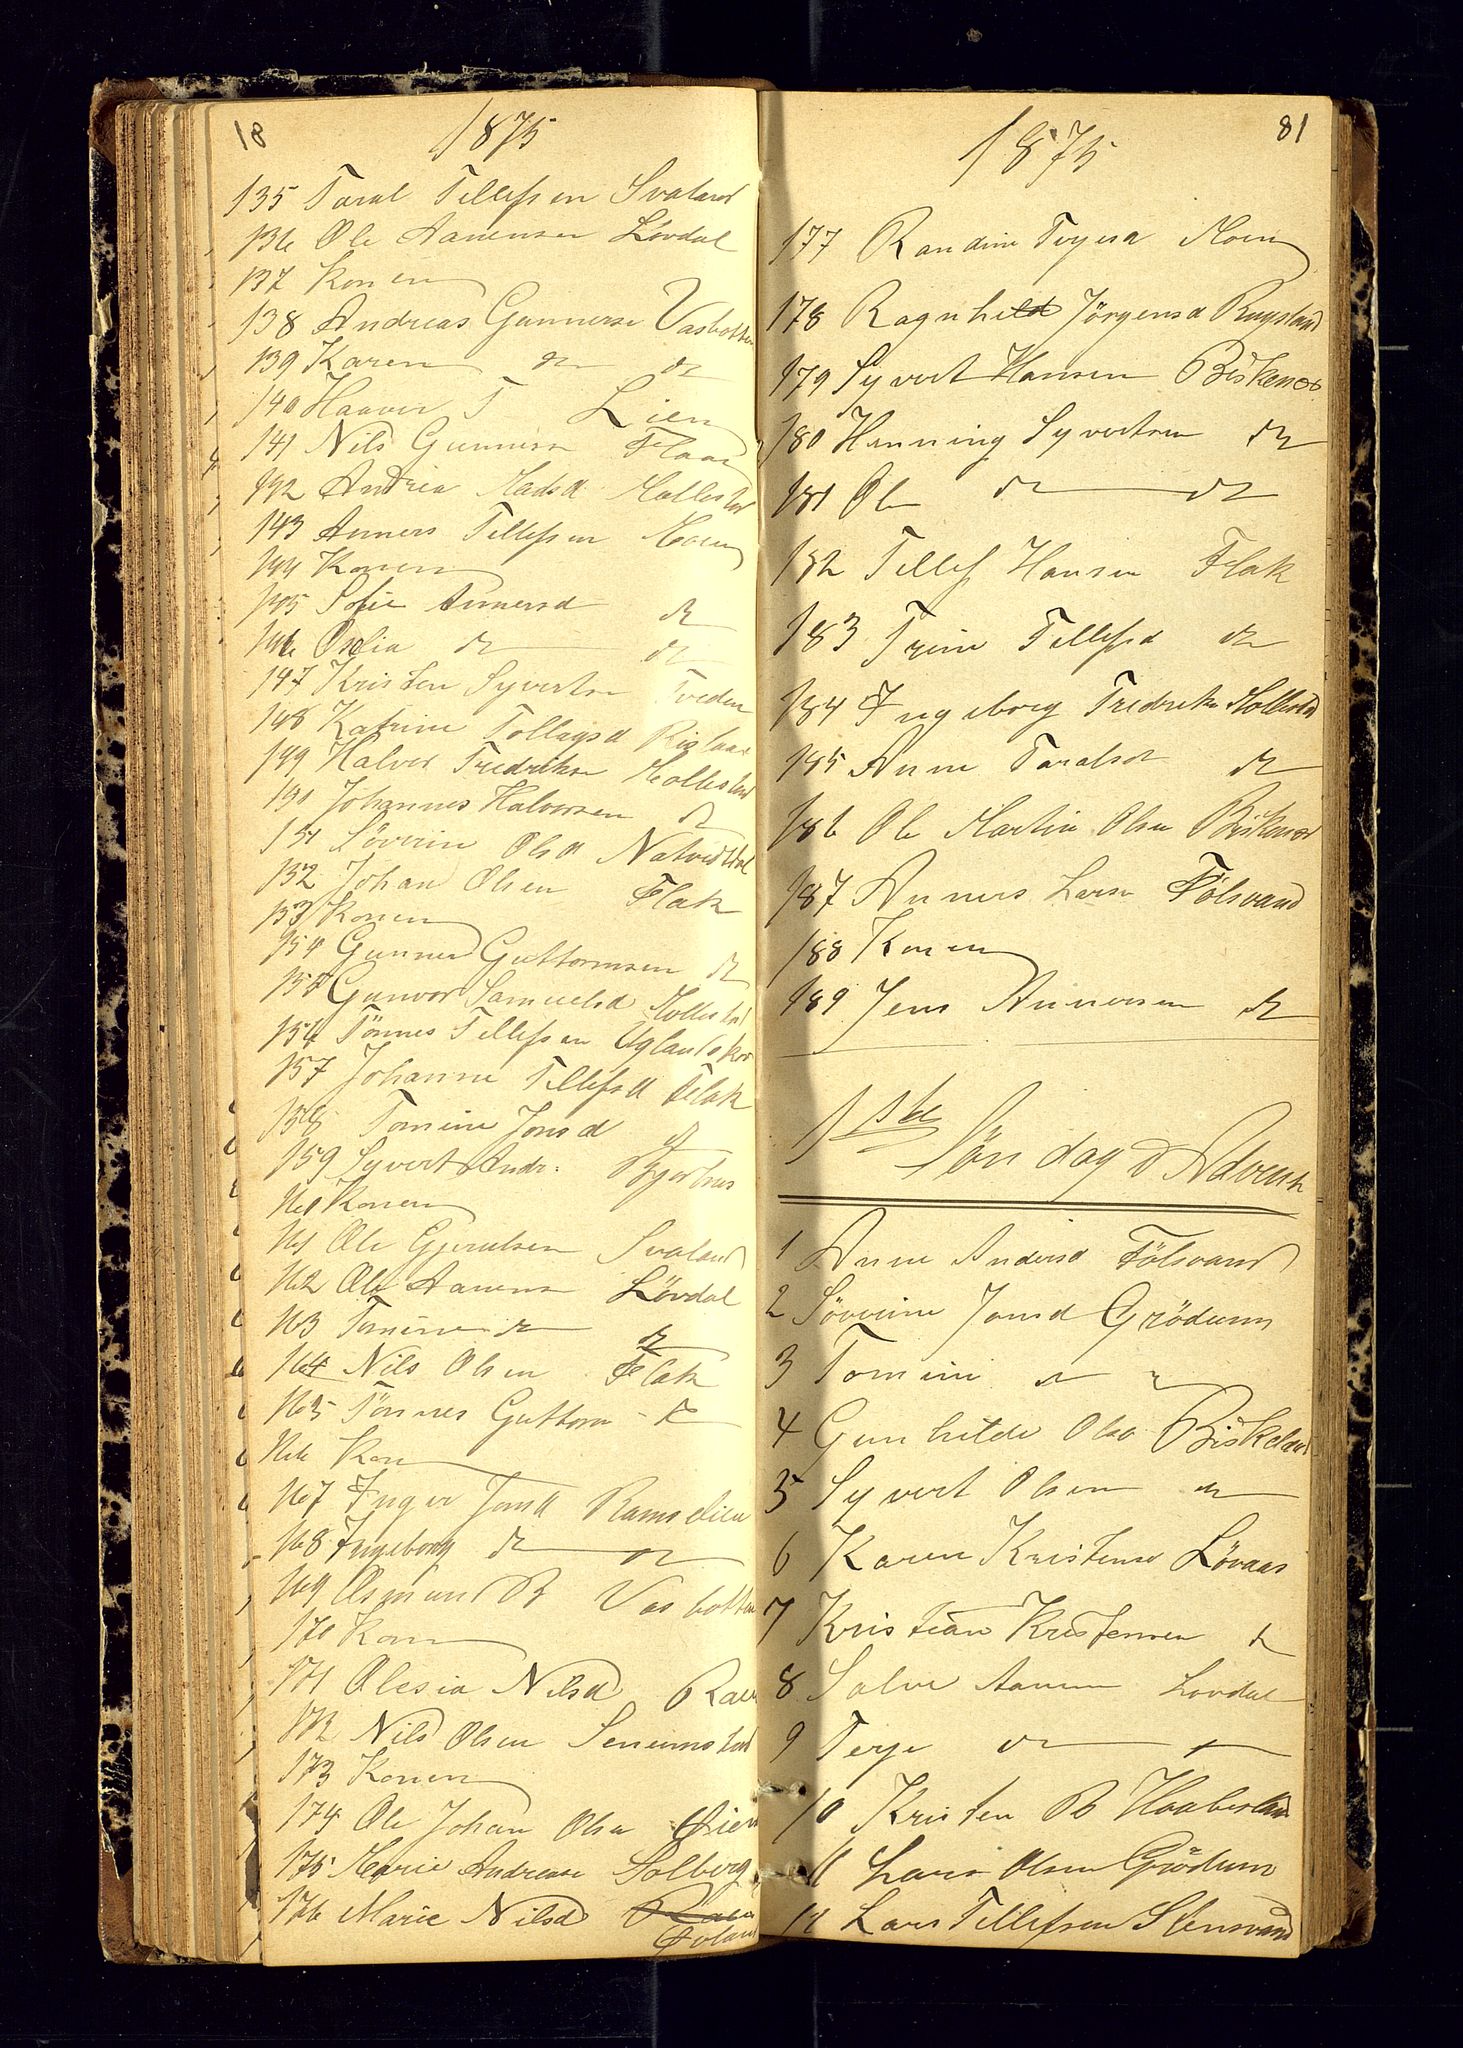 18
1875
135 Taral Tellefsen Svaland
136 Ole Aanensen Løvdal
137 Konen
138 Andreas Gunnerse Vasbotten
139 Karen do do
140 Haaver T Lien
141 Nils Gunnersn Flaa
142 Andrea Madsd Mollestad
143 Anners Tellefsen Moen
144 Konen
145 Sofie Annersd do
146 Oselia do do
147 Kristen Syvertsn Tveden
148 Katrine Tollagsd
149 Halvor Fredrikse Mollestad
150 Johannes Halvorsen do
151 Søverine Olsd Natvedtdal
152 Johan Olsen Flak
153 Konen
154 Gunner Guttormsen do
155 Gunvor Samuelsd Mollestad
156 Tønnes Tellefsen Uglandskor
157 Johanne Tellefsd Flak
158 Tomine Jonsd do
159 Syvert Andr: Bjorhus
160 Konen
161 Ole Gjerulsen Svaland
162 Ole Aanens Løvdal
163 Tomine do do
164 Nils Olsen Flak
165 Tønnes Guttorm - do
166 Kon
167 Inger Jonsd Ramselien
168 Ingeborg do do
169 Osmund B Vasbotten
170 Kon
171 Olesia Nilsd
172 Nils Olsen Senumstad
173 Konen
174 Ole Johan Olsn Øien
175 Marie Andrease Solberg
176 Marie Nilsd
81
1875
177 Randine Terjesd Moen
178 Ragnhild Jörgensd Rugsland
179 Syvert Hansen Biskenes
180 Henning Syvertsen do
181 Ole do do
182 Tellef Hansen Flak
183 Trine Tellefsd do
184 Ingeborg Fredriks Mollestad
185 Anne Taralsd do
186 Ole Martin Olsn Biskenes
187 Anners Larsn Fölsvand
188 Konen
189 Jens Annersen do
1ste Søndag i Advent
1 Anne Andersd Fölsvand
2 Söverine Jonsd Grödum
3 Tomine do
4 Gunhilde Olsd Biskeland
5 Syvert Olsen do
6 Karen Kristensd Lövaas
7 Kristian Kristensen do
8 Salve Aanen Lövdal
9 Terje do
10 Kristen B Haabesland
11 Lars Olsen Grödum
12 Lars Tellefsen Stensvand